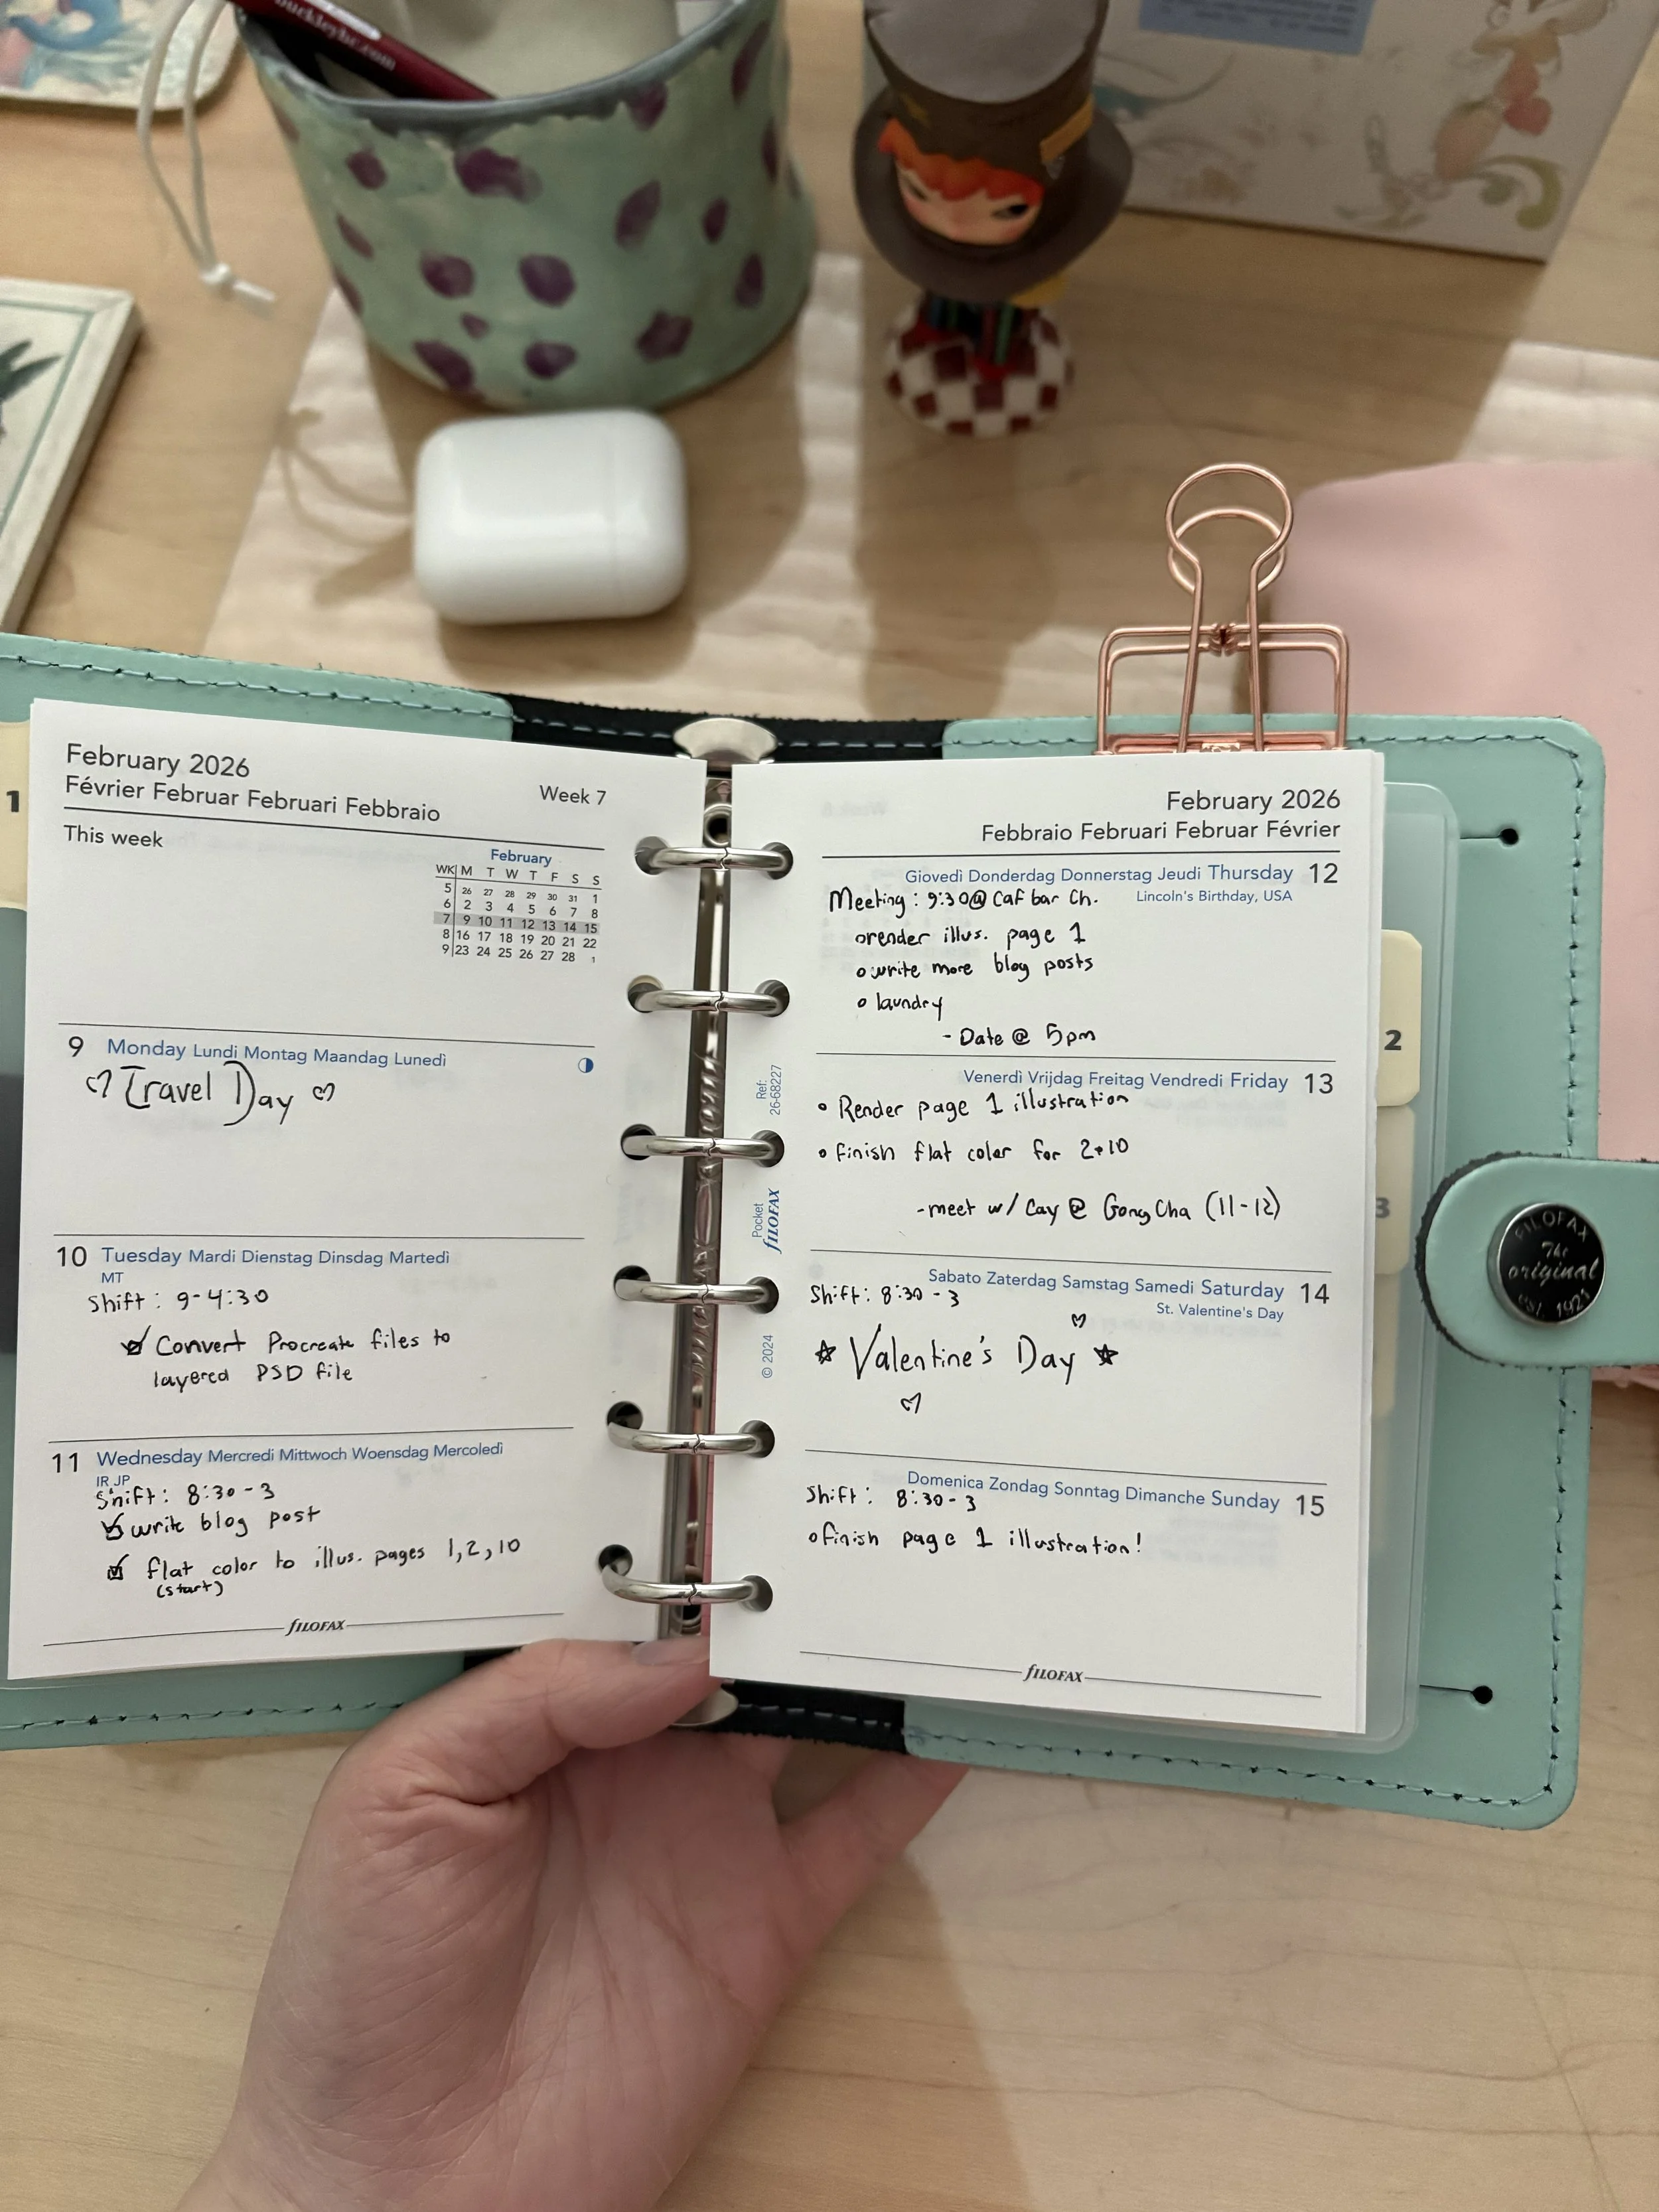 buckleyhc.com
1
February 2026
Février Februar Februari Febbraio
Week 7
This week
February
WK M T W T F S S
5 26 27 28 29 30 31 1
6 2 3 4 5 6 7 8
7 9 10 11 12 13 14 15
8 16 17 18 19 20 21 22
9 23 24 25 26 27 28 1
9 Monday Lundi Montag Maandag Lunedì
♡ Travel Day ♡
10 Tuesday Mardi Dienstag Dinsdag Martedì
MT
Shift: 9-4:30
Convert Procreate files to
layered PSD file
11 Wednesday Mercredi Mittwoch Woensdag Mercoledì
IR JP
Shift: 8:30-3
write blog post
flat color to illus. pages 1,2,10
(start)
fILOFAX
February 2026
Febbraio Februari Februar Février
Giovedì Donderdag Donnerstag Jeudi Thursday 12
Lincoln's Birthday, USA
Meeting: 9:30@ Caf bar Ch.
render illus. page 1
write more blog posts
laundry
- Date @ 5pm
Venerdì Vrijdag Freitag Vendredi Friday 13
• Render page 1 illustration
• finish flat color for 2+10
-meet w/ Cay @ Gong Cha (11-12)
Sabato Zaterdag Samstag Samedi Saturday 14
St. Valentine's Day
Shift: 8:30-3
☆ Valentine's Day ☆
Domenica Zondag Sonntag Dimanche Sunday 15
Shift: 8:30-3
finish page 1 illustration!
fILOFAX
Ref:
26-68227
Pocket
fILOFAX
© 2024
2
3
FILOFAX
The
original
est. 1921